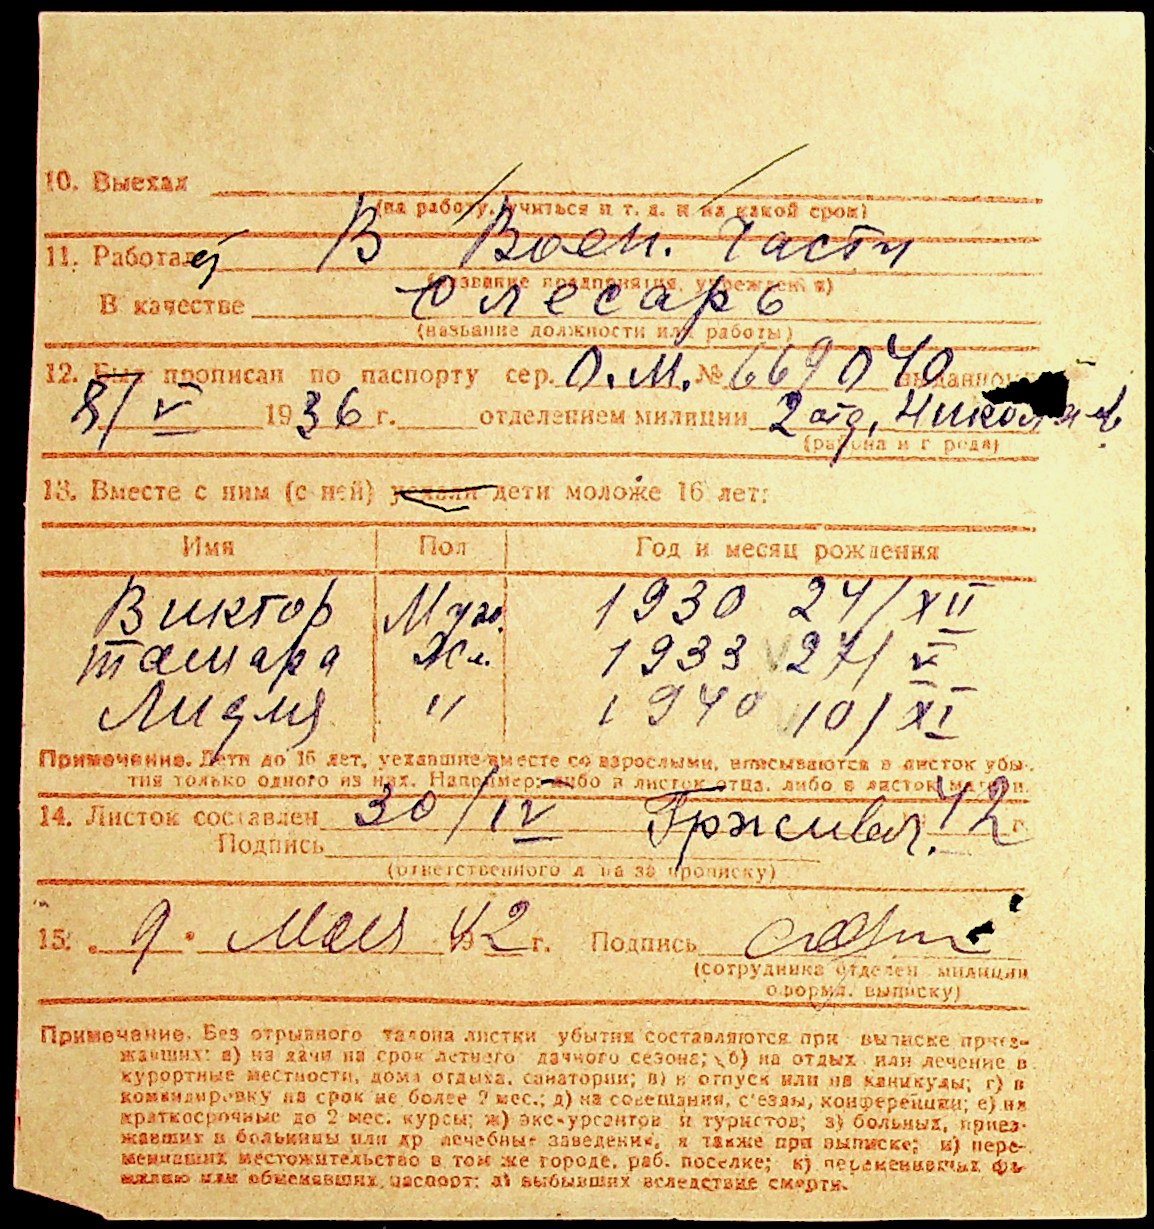 10. Выехал
(на работу, учиться и т. д. и на какой срок)
11. Работал В Воен. части
(название предприятия, учреждения)
В качестве Слесарь
(название должности или работы)
12. Был прописан по паспорту сер. О.М. № 669040 выданному
8/V 1936 г. отделением милиции 2 отд, Николаев
(района и города)
13. Вместе с ним (с ней) уехали дети моложе 16 лет:
Имя Пол Год и месяц рождения
Виктор Муж. 1930 24/XII
Тамара Ж. 1933 27/V
Лидия " 1940 10/XI
Примечание. Дети до 16 лет, уехавшие вместе со взрослыми, вписываются в листок убы-
тия только одного из них. Например: либо в листок отца, либо в листок матери.
14. Листок составлен 30/IV 42 г.
Подпись
(ответственного л на за прописку)
15. 9. Мая 1942 г. Подпись
(сотрудника отделен. милиции
оформл. выписку)
Примечание. Без отрывного талона листки убытия составляются при выписке приез-
жавших: а) на дачи на срок летнего дачного сезона; б) на отдых или лечение в
курортные местности, дома отдыха, санатории; в) в отпуск или на каникулы; г) в
командировку на срок не более 2 мес.; д) на совещания, с'езды, конференции; е) на
краткосрочные до 2 мес. курсы; ж) экскурсантов и туристов; з) больных, приез-
жавших в больницы или др лечебные заведения, а также при выписке; и) пере-
менивших местожительство в том же городе, раб. поселке; к) переменивших фа-
милию или обменявших паспорт; л) выбывших вследствие смерти.